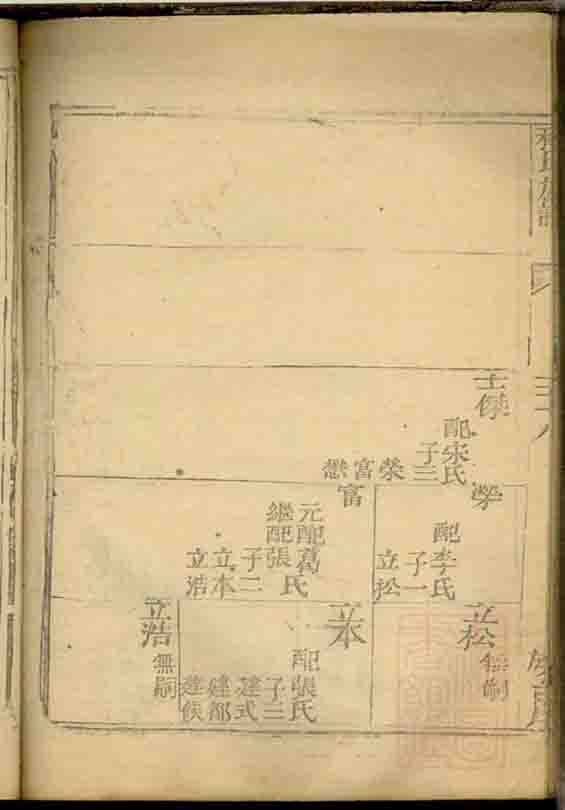 士傑
配宋氏
子三
榮 富 懋
榮
配李氏
子一
立松
富
元配葛氏
繼配張氏
子二
立本
立浩
立松
無嗣
立本
配張氏
子三
建式
建都
建侯
立浩
無嗣